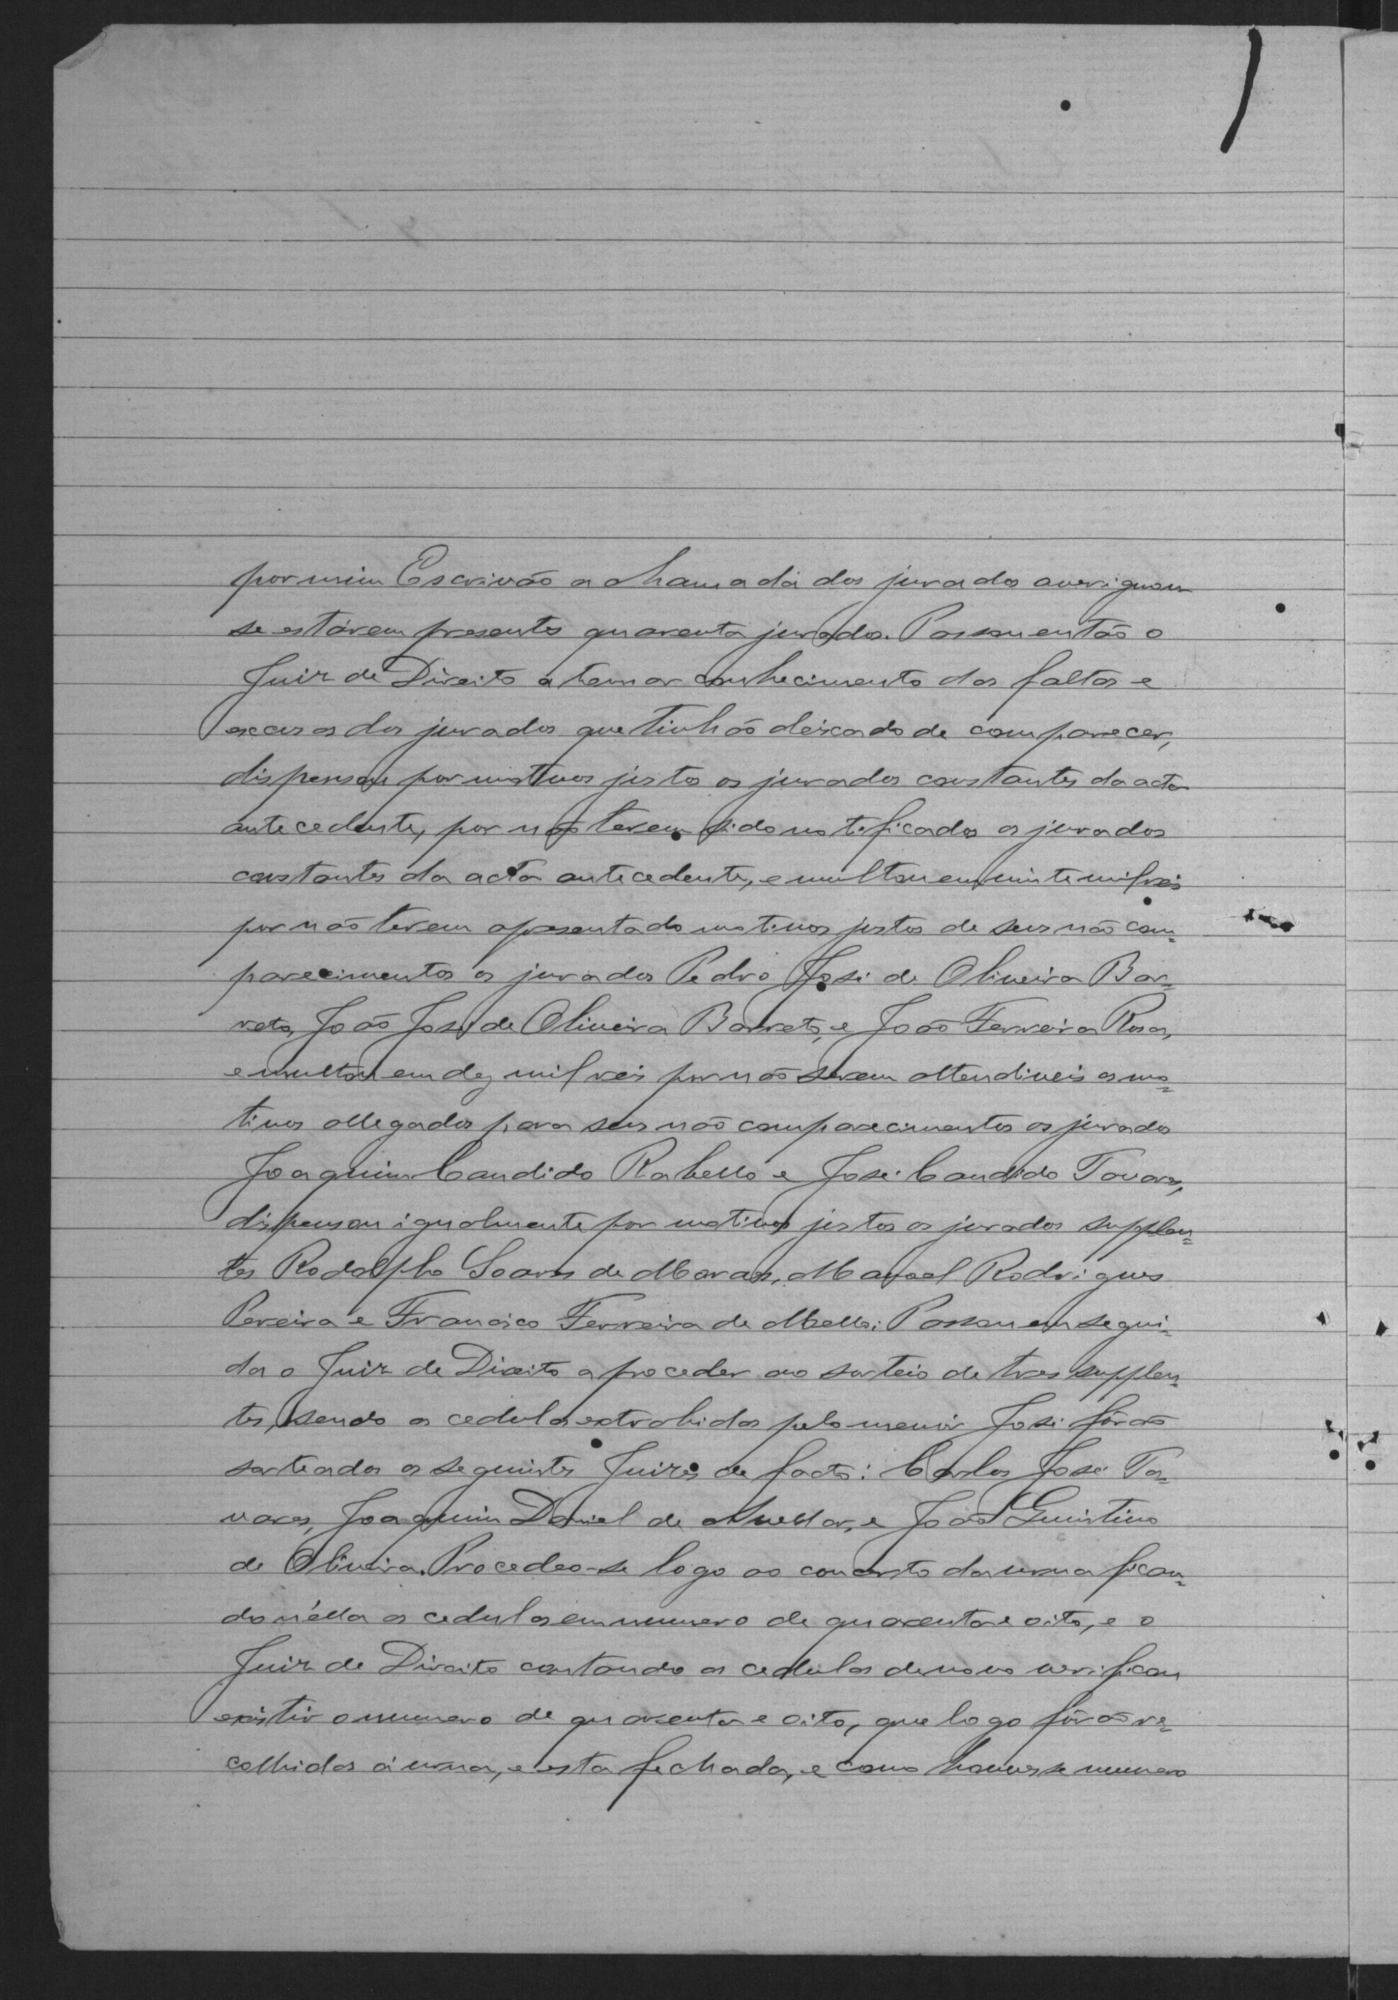 por mim Escrivão a chamada dos jurados averiguou
se estárem presentes quarenta jurados. Passou então o
Juiz de Direito a tomar conhecimento das faltas e
escusas dos jurados que tinhão deixado de comparecer,
dispensou por motivos justos os jurados constantes da acta
antecedente, por não terem sido notificados os jurados
constantes da acta antecedente, e multou em vinte mil reis
por não terem apresentado motivos justos de seus não com=
parecimentos os jurados Pedro José de Oliveira Bar=
reto, João José de Oliveira Barreto, e João Ferreira Rosa,
e multou em dez mil reis por não serem attendiveis os mo=
tivos allegados para seus não comparecimentos os jurados
Joaquim Candido Rabello e José Candido Tavares,
dispensou igualmente por motivos justos os jurados supplen=
tes Rodolpho Soares de Moraes, Manoel Rodrigues
Pereira e Francisco Ferreira de Mello: Passou em segui=
da o Juiz de Direito a proceder ao sorteio de tres supplen=
tes, sendo as cedulas extrahidas pelo menór José fôrão
sorteados os seguintes Juizes de facto: Carlos José Ta=
vares, Joaquim Daniel de Avellar, e João Guistino
de Oliveira. Procedeo-se logo ao concerto da urna fican=
do n'ella as cedulas em numero de quarenta e oito, e o
Juiz de Direito contando as cedulas de novo verificou
existir o numero de quarenta e oito, que logo fôrão re=
colhidas á urna, e esta fechada, e como houvesse numero